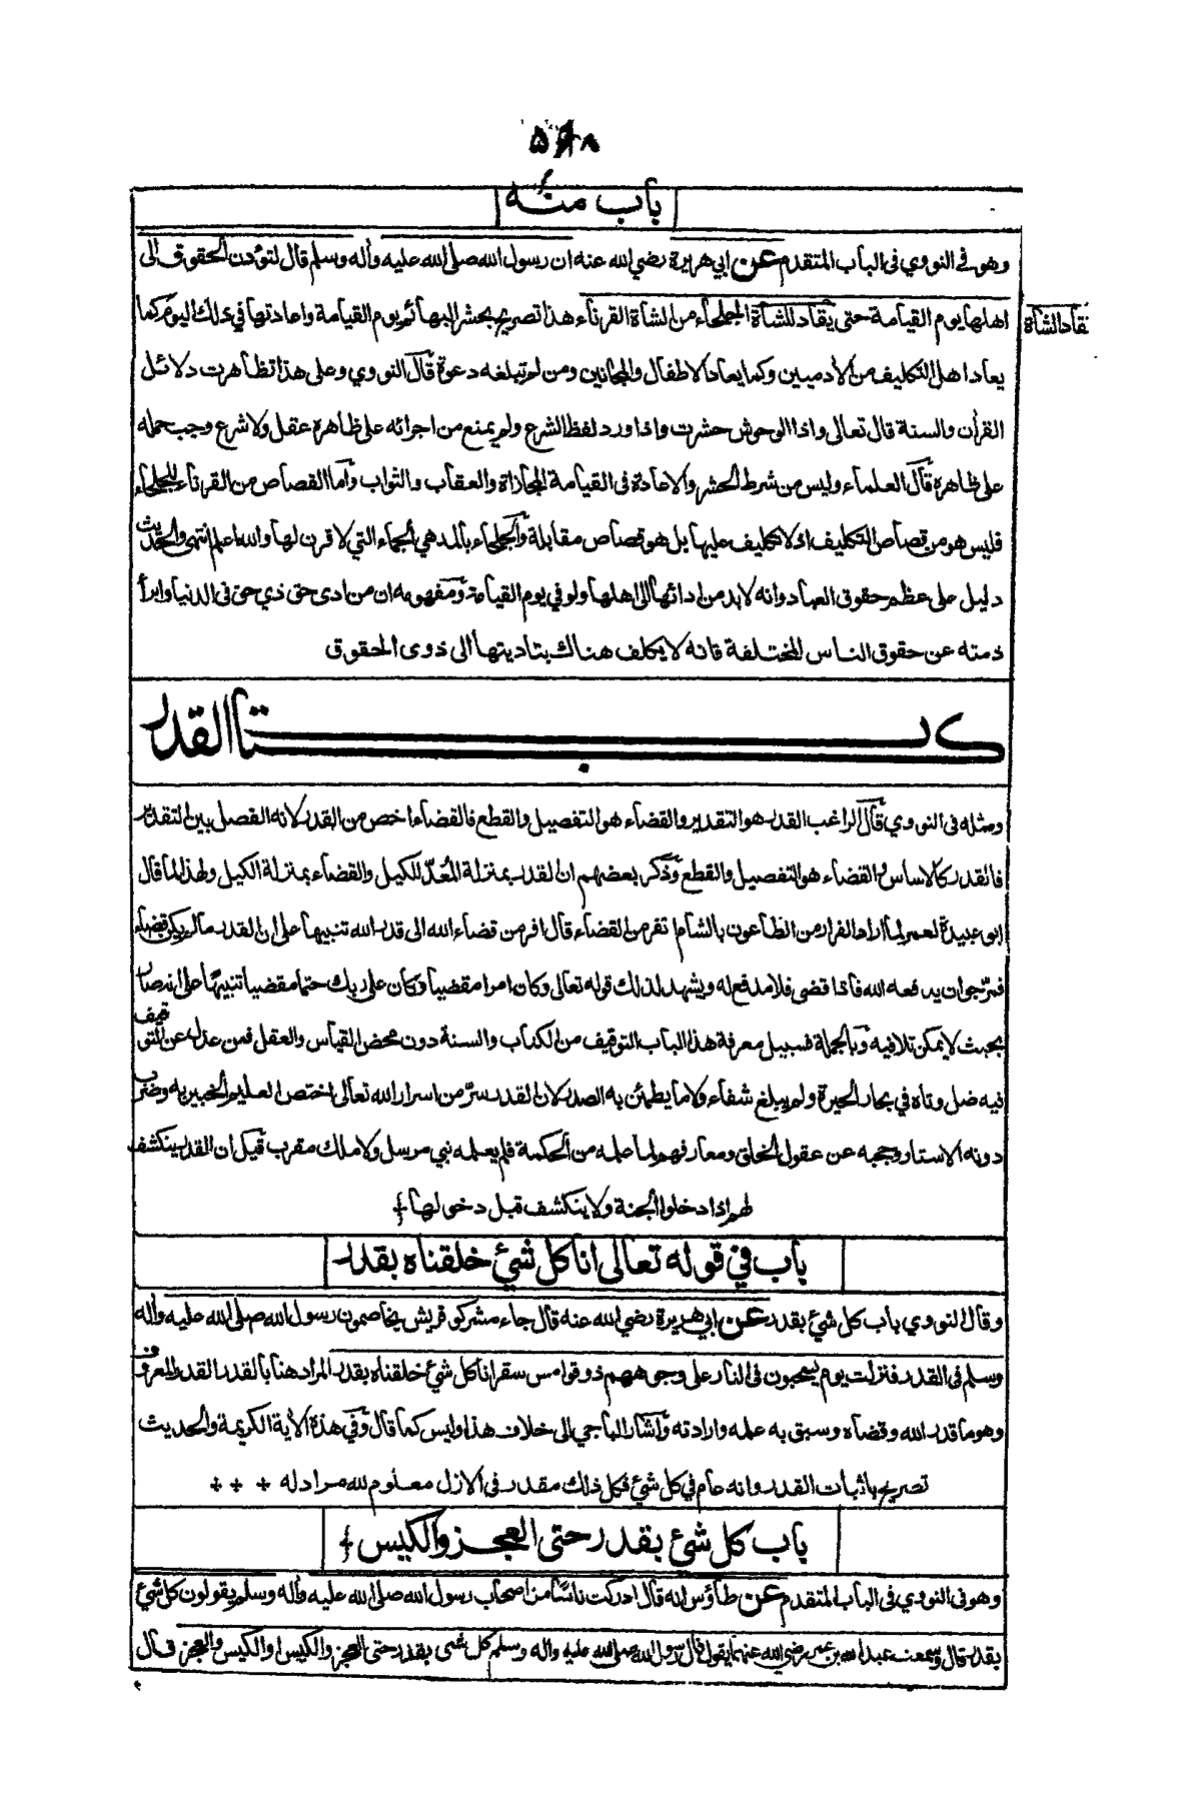 باب منه
وهو في النووي في الباب المتقدم عن ابي هريرة رضي الله عنه ان رسول الله صلى الله عليه وأله وسلم قال لتؤدن الحقوق الى
اهلها يوم القيامة حتى يقاد للشأة الجلحاء من الشاة القرناء هذا تصريح بحشر البهائم يوم القيامة واعادتها في ذلك اليوم كما
نقاد الشاة
يعاد اهل التكليف من الأدميين وكما يعاد الاطفال والمجانين ومن لم تبلغه دعوة قال النووي وعلى هذا تظاهرت دلائل
القرأن والسنة قال تعالى واذا الوحوش حشرت واذا ورد لفظ الشرع ولم يمنع من اجرائه على ظاهره عقل ولا شرع وجب حمله
على ظاهره قال العلماء وليس من شرط الحشر والاعادة في القيامة المجازاة والعقاب والثواب وأما القصاص من القرناء للجلحاء
فليس هو من قصاص التكليف اذ لا تكليف عليها بل هو قصاص مقابلة والجلحاء بالمد هي الجماء التي لا قرن لها والله اعلم انتهى والحديث
دليل على عظم حقوق العباد وانه لابد من ادائها الى اهلها ولو في يوم القيامة ومفهومه ان من ادى حق ذي حق في الدنيا وابرأ
ذمته عن حقوق الناس المختلفة فانه لا يكلف هناك بتاديتها الى ذوى الحقوق
كتاب القدر
ومثله في النووي قال الراغب القدر هو التقدير والقضاء هو التفصيل والقطع فالقضاء اخص من القدر لانه الفصل بين التقدير
فالقدر كالاساس والقضاء هو التفصيل والقطع وذكر بعضهم ان القدر بمنزلة المُعدّ للكيل والقضاء بمنزلة الكيل ولهذا لما قال
ابو عبيدة لعمر لما اراد الفرار من الطاعون بالشام تفر من القضاء قال افر من قضاء الله الى قدر الله تنبيها على ان القدر مالم يكن قضاء
فمرجوان يدفعه الله فاذا قضى فلا مدفع له ويشهد لذلك قوله تعالى وكان امرا مقضيا وكان على ربك حتما مقضيا تنبيها على انه صار
بحيث لا يمكن تلافيه وبالجملة فسبيل معرفة هذا الباب التوقيف من الكتاب والسنة دون محض القياس والعقل فمن عدل عن التوقيف
فيه ضل وتاه في بحار الحيرة ولم يبلغ شفاء ولا ما يطمئن به الصدر لان القدر سرّ من اسرار الله تعالى اختص العليم الخبير به وضرب
دونه الاستار وحجبه عن عقول الخلق ومعارفهم لما علمه من الحكمة فلم يعلمه نبي مرسل ولا ملك مقرب قيل ان القدر ينكشف
لهم اذا دخلوا الجنة ولا ينكشف قبل دخولها
باب في قوله تعالى انا كل شئ خلقناه بقدر
وقال النووي باب كل شئ بقدر عن ابي هريرة رضي الله عنه قال جاء مشركو قريش يخاصمون رسول الله صلى الله عليه وأله
وسلم في القدر فنزلت يوم يسحبون في النار على وجوههم ذوقوا مس سقر انا كل شئ خلقناه بقدر المراد هنا بالقدر القدر المعروف
وهو ما قدر الله وقضاه وسبق به علمه وارادته وأشار الباجي الى خلاف هذا وليس كما قال وفي هذه الأية الكريمة والحديث
تصريح باثبات القدر وانه عام في كل شئ فكل ذلك مقدر في الازل معلوم لله مراد له
باب كل شئ بقدر حتى العجز والكيس
وهو في النووي في الباب المتقدم عن طاؤس انه قال ادركت ناسًا من اصحاب رسول الله صلى الله عليه وأله وسلم يقولون كل شئ
بقدر قال وسمعت عبد الله بن عمر رضي الله عنهما يقول قال رسول الله صلى الله عليه واله وسلم كل شئ بقدر حتى العجز والكيس او الكيس والعجز قال